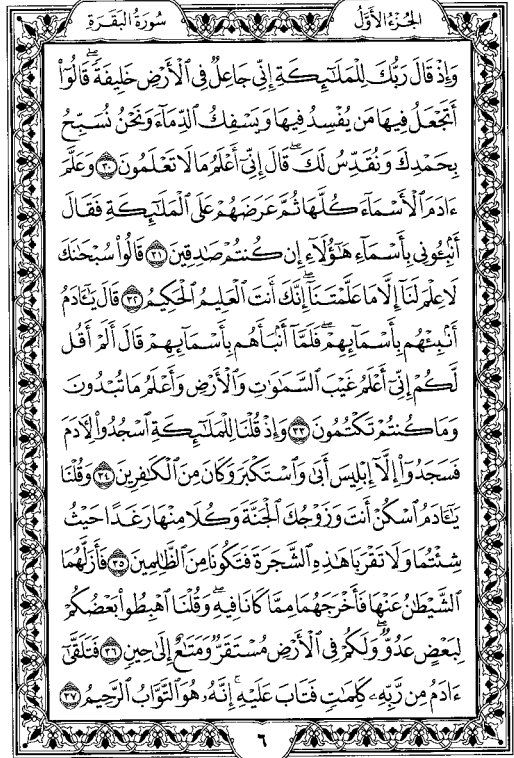 سُورَةُ البَقَرَةِ
الجُزْءُ الأَوَّلُ
وَإِذْ قَالَ رَبُّكَ لِلْمَلَٰٓئِكَةِ إِنِّي جَاعِلٌ فِي ٱلْأَرْضِ خَلِيفَةً ۖ قَالُوٓا۟
أَتَجْعَلُ فِيهَا مَن يُفْسِدُ فِيهَا وَيَسْفِكُ ٱلدِّمَآءَ وَنَحْنُ نُسَبِّحُ
بِحَمْدِكَ وَنُقَدِّسُ لَكَ ۖ قَالَ إِنِّيٓ أَعْلَمُ مَا لَا تَعْلَمُونَ ٣٠ وَعَلَّمَ
ءَادَمَ ٱلْأَسْمَآءَ كُلَّهَا ثُمَّ عَرَضَهُمْ عَلَى ٱلْمَلَٰٓئِكَةِ فَقَالَ
أَنۢبِـُٔونِي بِأَسْمَآءِ هَٰٓؤُلَآءِ إِن كُنتُمْ صَٰدِقِينَ ٣١ قَالُوا۟ سُبْحَٰنَكَ
لَا عِلْمَ لَنَآ إِلَّا مَا عَلَّمْتَنَآ ۖ إِنَّكَ أَنتَ ٱلْعَلِيمُ ٱلْحَكِيمُ ٣٢ قَالَ يَٰٓـَٔادَمُ
أَنۢبِئْهُم بِأَسْمَآئِهِمْ ۖ فَلَمَّآ أَنۢبَأَهُم بِأَسْمَآئِهِمْ قَالَ أَلَمْ أَقُل
لَّكُمْ إِنِّيٓ أَعْلَمُ غَيْبَ ٱلسَّمَٰوَٰتِ وَٱلْأَرْضِ وَأَعْلَمُ مَا تُبْدُونَ
وَمَا كُنتُمْ تَكْتُمُونَ ٣٣ وَإِذْ قُلْنَا لِلْمَلَٰٓئِكَةِ ٱسْجُدُوا۟ لِءَادَمَ
فَسَجَدُوٓا۟ إِلَّآ إِبْلِيسَ أَبَىٰ وَٱسْتَكْبَرَ وَكَانَ مِنَ ٱلْكَٰفِرِينَ ٣٤ وَقُلْنَا
يَٰٓـَٔادَمُ ٱسْكُنْ أَنتَ وَزَوْجُكَ ٱلْجَنَّةَ وَكُلَا مِنْهَا رَغَدًا حَيْثُ
شِئْتُمَا وَلَا تَقْرَبَا هَٰذِهِ ٱلشَّجَرَةَ فَتَكُونَا مِنَ ٱلظَّٰلِمِينَ ٣٥ فَأَزَلَّهُمَا
ٱلشَّيْطَٰنُ عَنْهَا فَأَخْرَجَهُمَا مِمَّا كَانَا فِيهِ ۖ وَقُلْنَا ٱهْبِطُوا۟ بَعْضُكُمْ
لِبَعْضٍ عَدُوٌّ ۖ وَلَكُمْ فِي ٱلْأَرْضِ مُسْتَقَرٌّ وَمَتَٰعٌ إِلَىٰ حِينٍ ٣٦ فَتَلَقَّىٰٓ
ءَادَمُ مِن رَّبِّهِۦ كَلِمَٰتٍ فَتَابَ عَلَيْهِ ۚ إِنَّهُۥ هُوَ ٱلتَّوَّابُ ٱلرَّحِيمُ ٣٧
٦